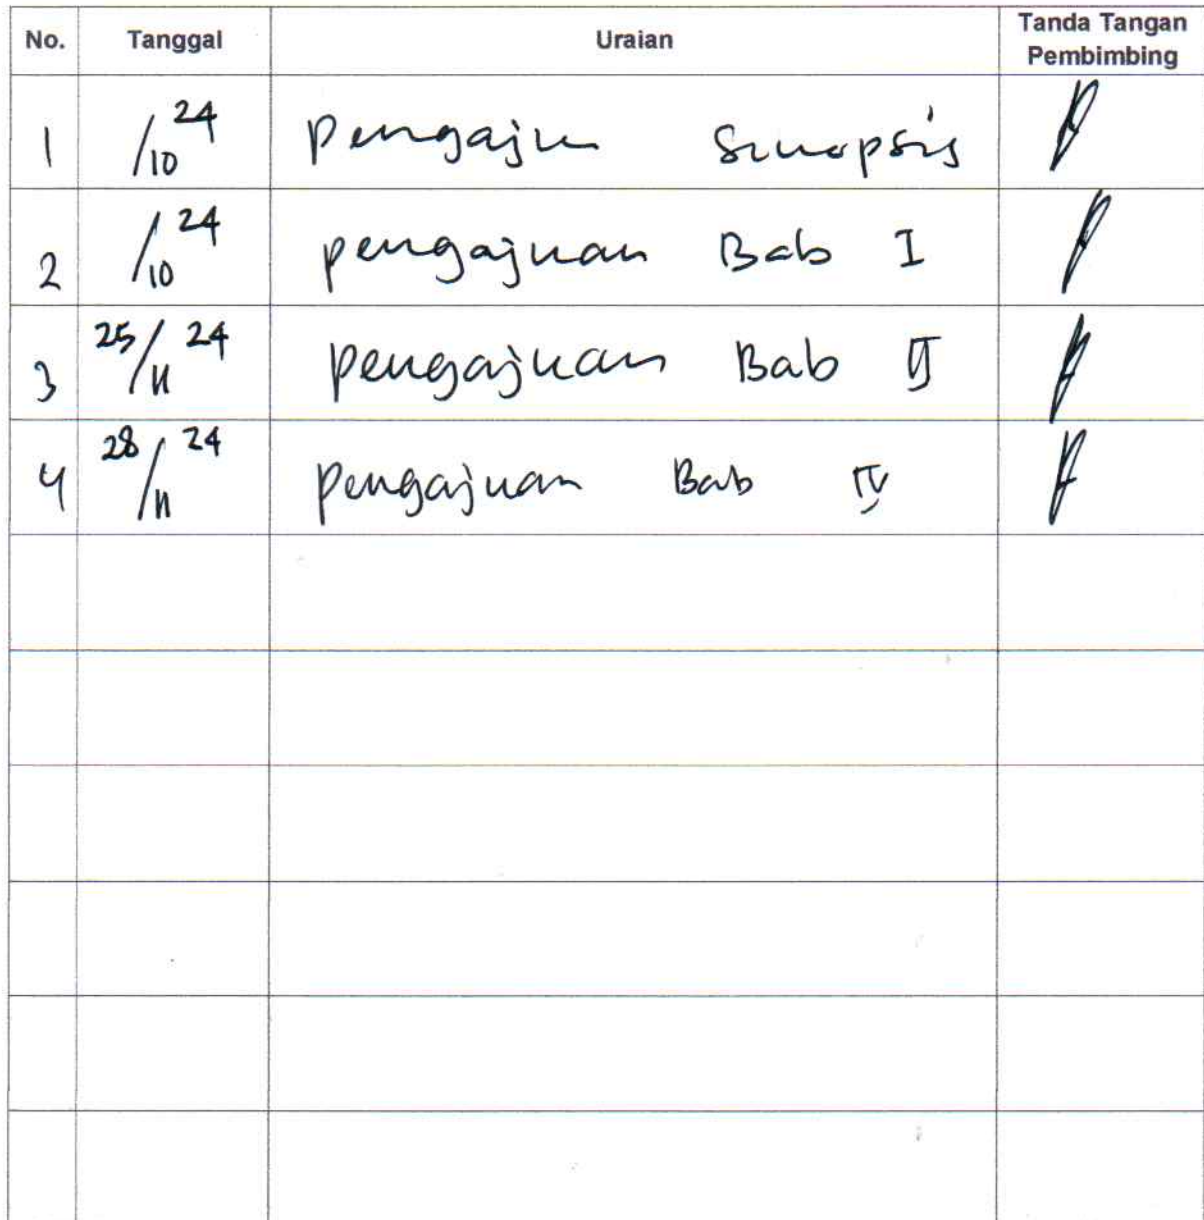 No. Tanggal Uraian Tanda Tangan Pembimbing
1 /10 24 Pengajun Sinopsis
2 /10 24 pengajuan Bab I
3 25/11 24 pengajuan Bab II
4 28/11 24 pengajuan Bab IV